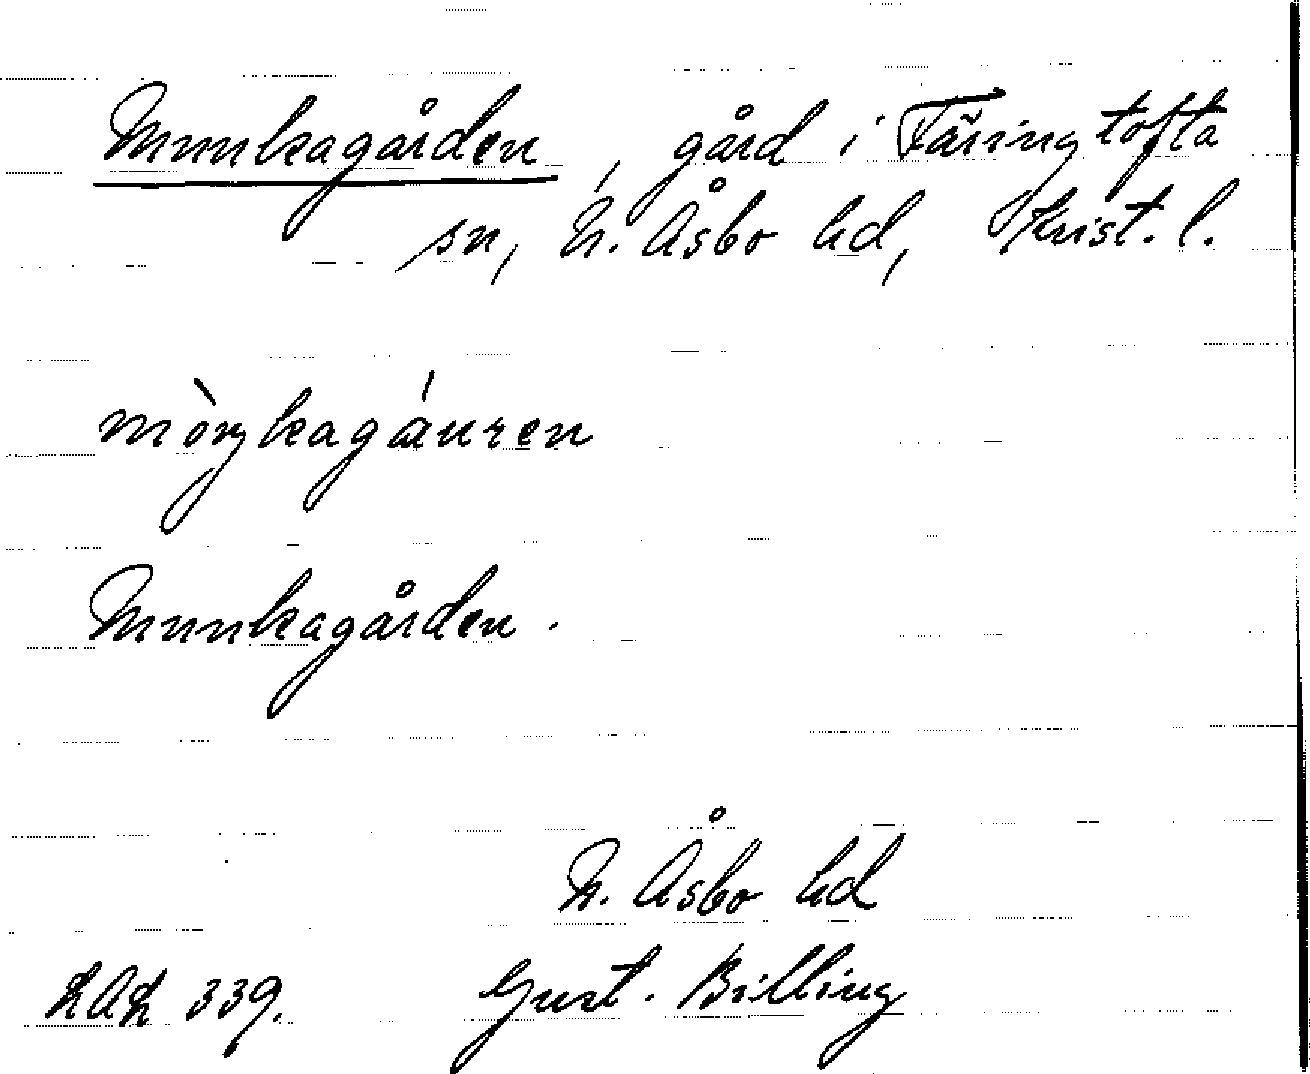 Munkagården, gård i Färingtofta
sn, N. Åsbo hd, Krist. l.
mòŋkagáuren
Munkagården.
N. Åsbo hd
LAL 339. Gust. Billing